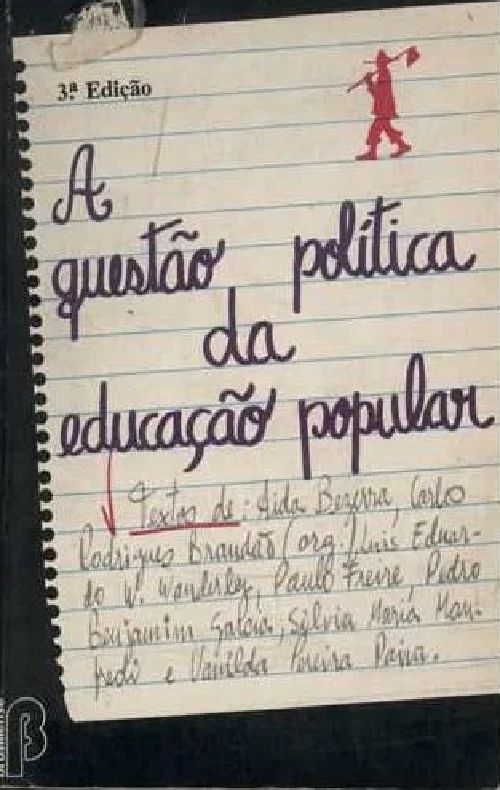 3ª Edição
A
questão política
da
educação popular
Textos de: Aida Bezerra, Carlo
Rodrigues Brandão (org.) Luis Eduar-
do W. Wanderley, Paulo Freire, Pedro
Benjamim Garcia, Sílvia Maria Man-
fredi e Vanilda Pereira Paiva.